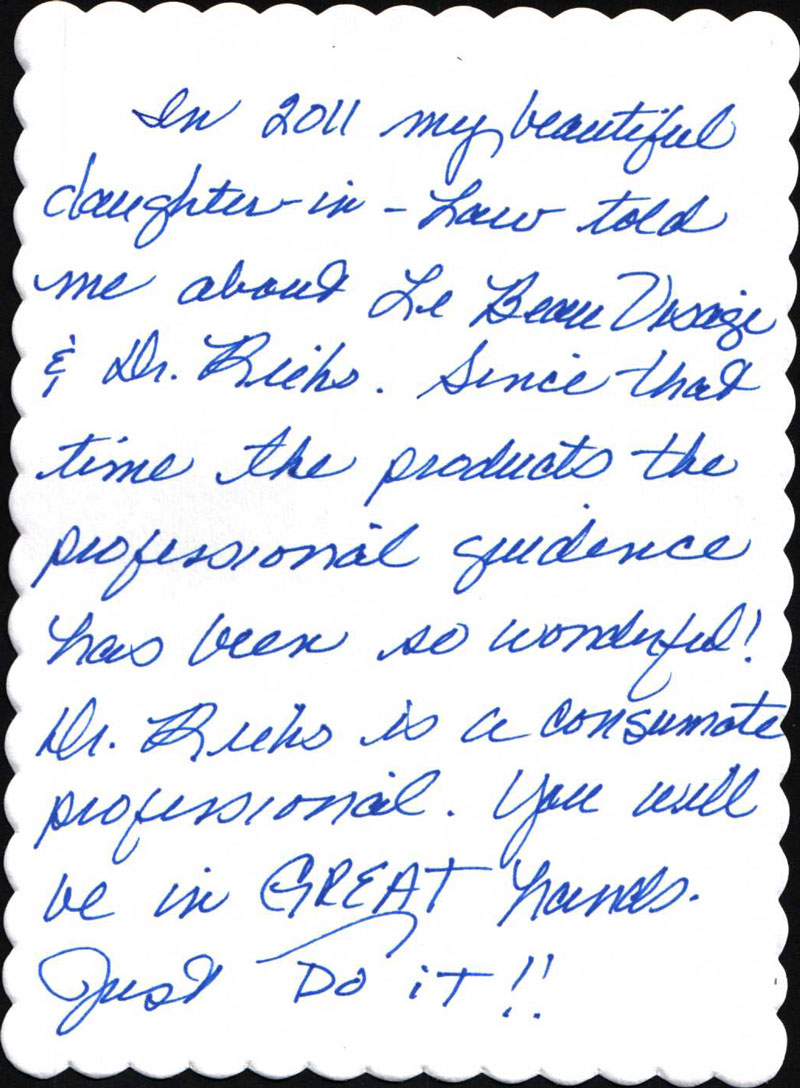 In 2011 my beautiful
daughter-in-Law told
me about Le Beau Visage
& Dr. Riehs. Since that
time the products the
professional guidence
has been so wonderful!
Dr. Riehs is a consumate
professional. You will
be in GREAT hands.
Just Do iT!!